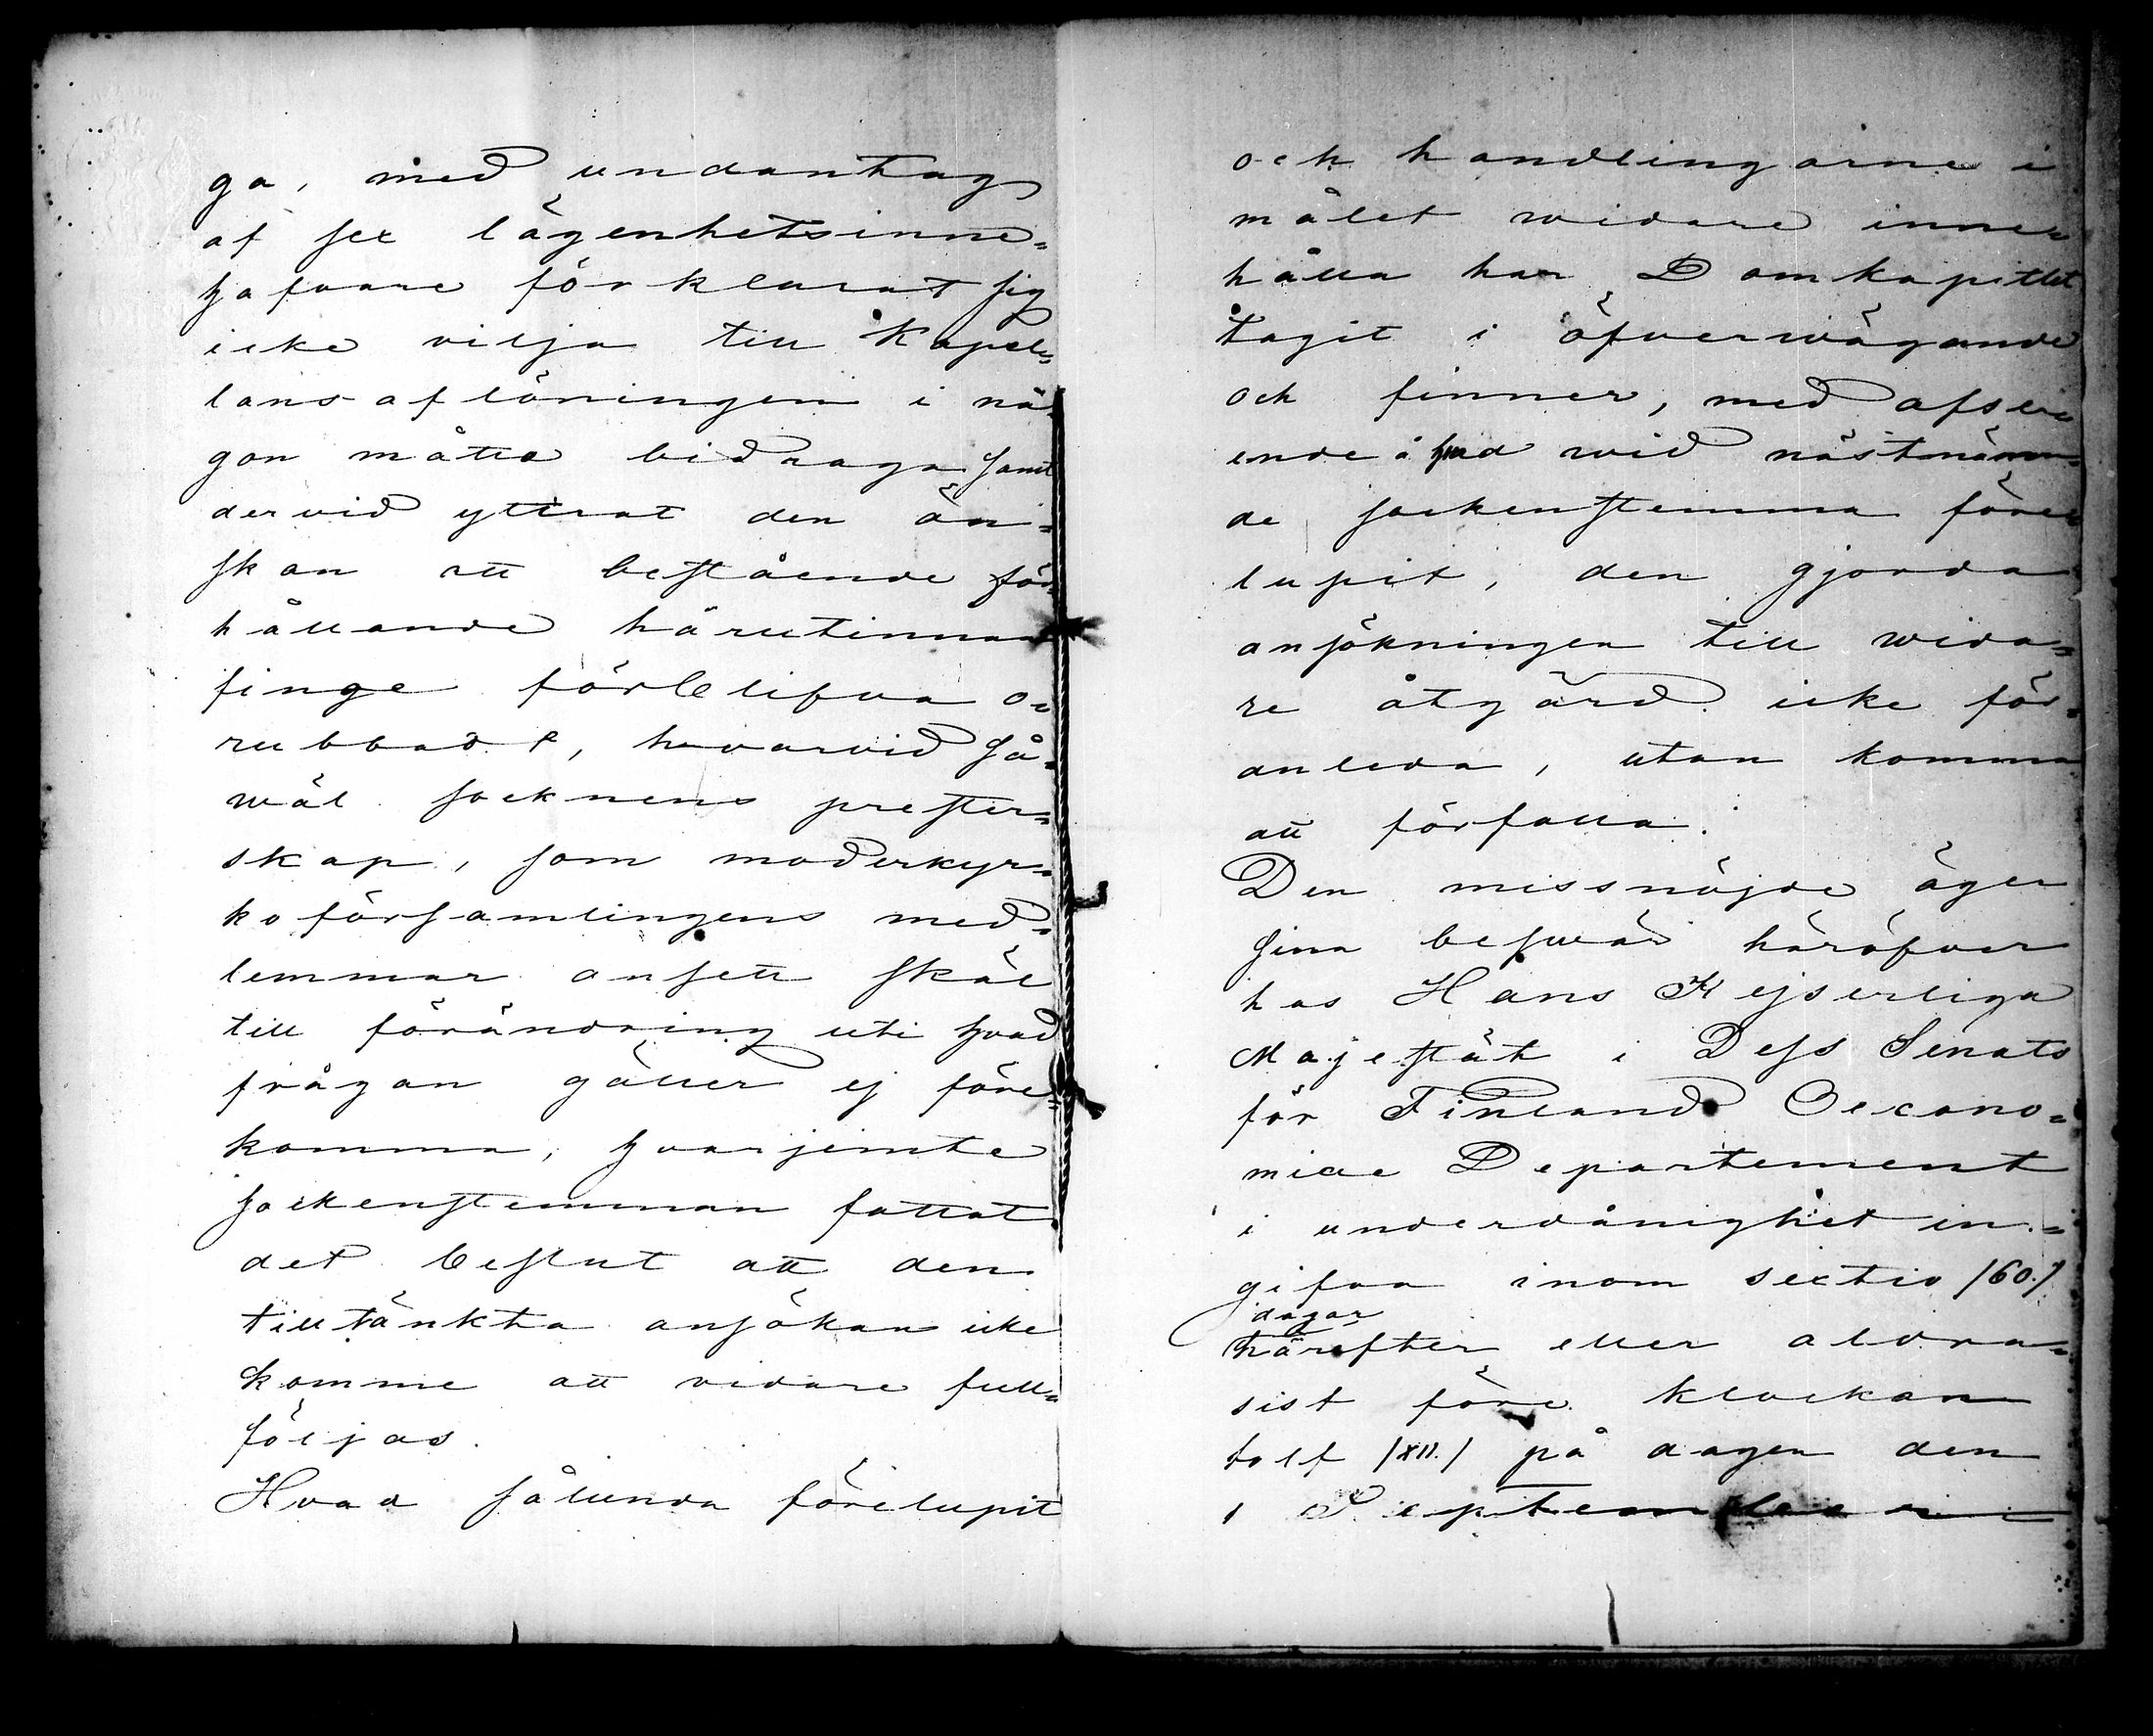 ga, med undantag
af sex lägenhetsinne-
hafvare förklarat sig
icke vilja till kapel-
lans aflöningen i nå-
gon måtto bidraga samt
dervid yttrat den ön-
skan att bestående för-
hållande härutinnan
finge förblifva o-
rubbadt, hvarvid så-
wäl socknens prester-
skap, som moderkyr-
koförsamlingens med-
lemmar ansett skäl
till förändring uti hvad
frågan gäller ej före-
komma, hvarjemte
sockenstemman fattat
det beslut att den
tilltänkta ansökan icke
komme att vidare full-
följas.
Hvad sålunda förelupit
och handlingarne i
målet widare inne-
hålla har Domkapitlet
tagit i öfverwägande
och finner, med afse-
ende å hvad wid nästnämn-
de sockenstemma före-
lupit, den gjorda
ansökningen till wida-
re åtgärd icke för-
anleda, utan komma
att förfalla.
Den missnöjde äger
sina beswär häröfver
hos Hans Kejserliga
Majestät i Dess Senats
för Finland Oecono-
miae Departement
i underdånighet in-
gifva inom sextio /60./
dagar
härefter eller aldra-
sist före klockan
tolf /XII./ på dagen den
1 September